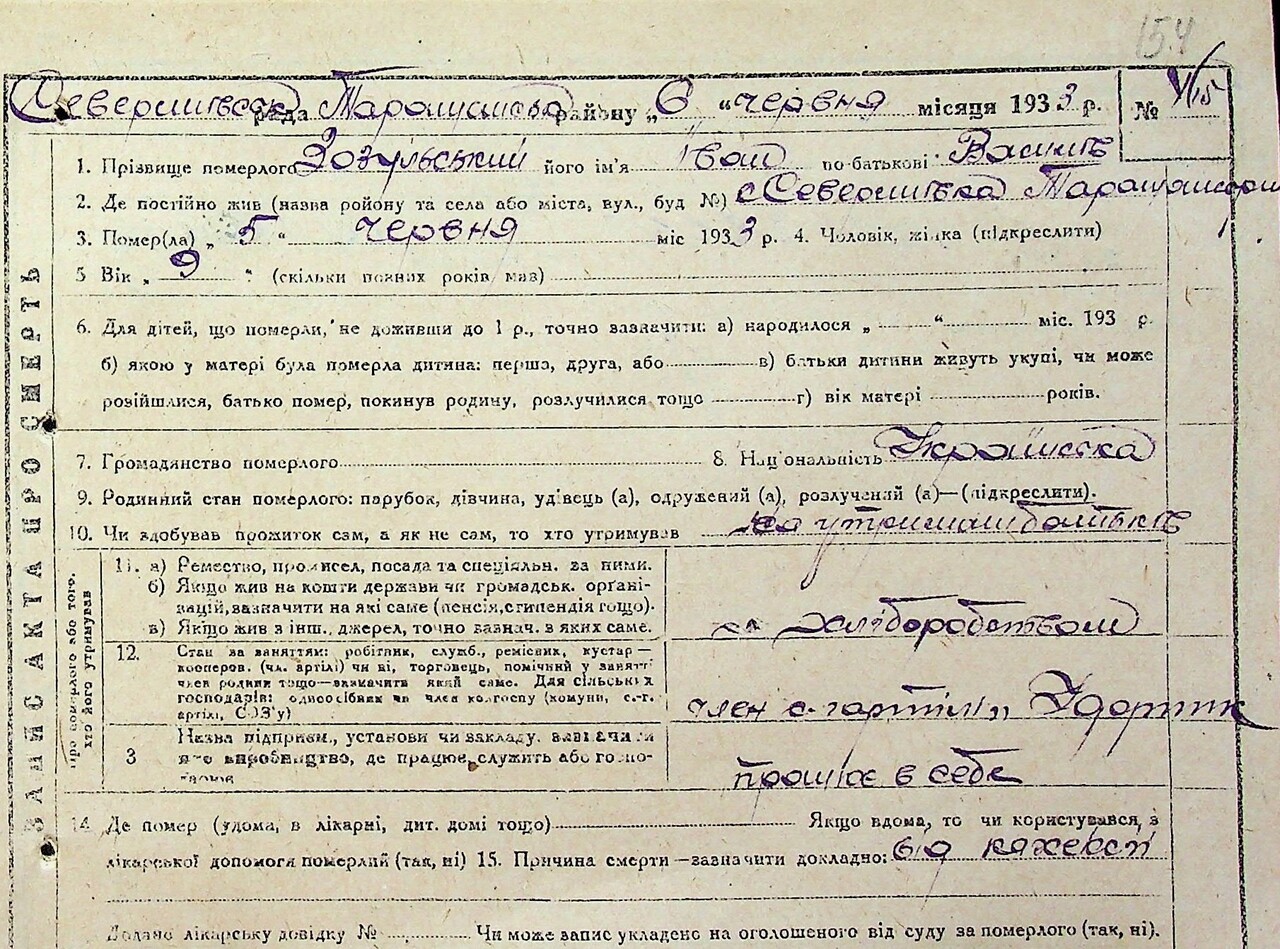 154
Северинівська рада Таращанського району „ 6 “ червня місяця 1933 р. № 1/15
1. Прізвище померлого Зозульський його ім'я Іван по-батькові Василів
2. Де постійно жив (назва району та села або міста, вул., буд №) с Северинівка
3. Помер(ла) „ 5 “ червня міс 1933 р. 4. Чоловік, жінка (підкреслити)
5 Вік „ 9 “ (скільки повних років мав)
6. Для дітей, що померли, не доживши до 1 р., точно зазначити: а) народилося „ “ міс. 193 р.
б) якою у матері була померла дитина: перша, друга, або в) батьки дитини живуть укупі, чи може
розійшлися, батько помер, покинув родину, розлучилися тощо г) вік матері років.
7. Громадянство померлого 8. Національність Українська
9. Родинний стан померлого: парубок, дівчина, удівець (а), одружений (а), розлучений (а)—(підкреслити).
10. Чи здобував прожиток сам, а як не сам, то хто утримував на утриман батьків
ЗАПИС АКТА ПРО СМЕРТЬ
про померлого або того, хто його утримував
11. а) Ремество, промисел, посада та спеціяльн. за ними.
б) Якщо жив на кошти держави чи громадськ. органі-
зацій, зазначити на які саме (пенсія, стипендія тощо).
в) Якщо жив з інш. джерел, точно зазнач. з яких саме.
хліборобством
12. Стан за заняттям: робітник, служб., ремісник, кустар—
кооперов. (чл. артілі) чи ні, торговець, помічний у занятті
член родини тощо—зазначити який саме. Для сільських
господарів: одноосібник чи член колгоспу (комуни, с.-г.
артілі, СОЗ'у)
член с-г артілі „ Ударник
3 Назва підприєм., установи чи закладу, визначити
його виробництво, де працює, служить або госпо-
дарює
працює в себе
14. Де помер (удома, в лікарні, дит. домі тощо) Якщо вдома, то чи користувався з
лікарської допомоги померлий (так, ні) 15. Причина смерти—зазначити докладно: від кахексії
Додано лікарську довідку № Чи може запис укладено на оголошеного від суду за померлого (так, ні).